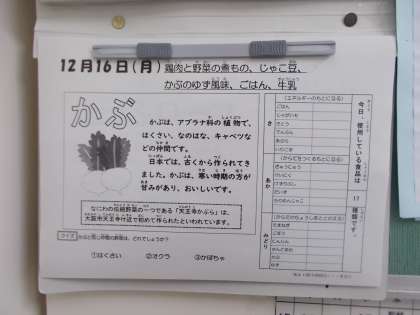 12月16日(月) 鶏肉と野菜の煮もの、じゃこ豆、
かぶのゆず風味、ごはん、牛乳
かぶ
かぶは、アブラナ科の植物で、
はくさい、なのはな、キャベツな
どの仲間です。
日本では、古くから作られてき
ました。かぶは、寒い時期の方が
甘みがあり、おいしいです。
なにわの伝統野菜の一つである「天王寺かぶら」は、
大阪市天王寺付近で初めて作られたといわれています。
クイズ かぶと同じ仲間の野菜は、どれでしょうか？
①はくさい ②オクラ ③かぼちゃ
き
(エネルギーのもとになる)
ごはん
じゃがいも
さとう
でんぷん
あぶら
あか
(からだをつくるもとになる)
ぎゅうにゅう
とりにく
だいず
みどり
たまねぎ
ごぼう
にんじん
かぶ
ゆず
今日、使用している食品は
17
種類です。